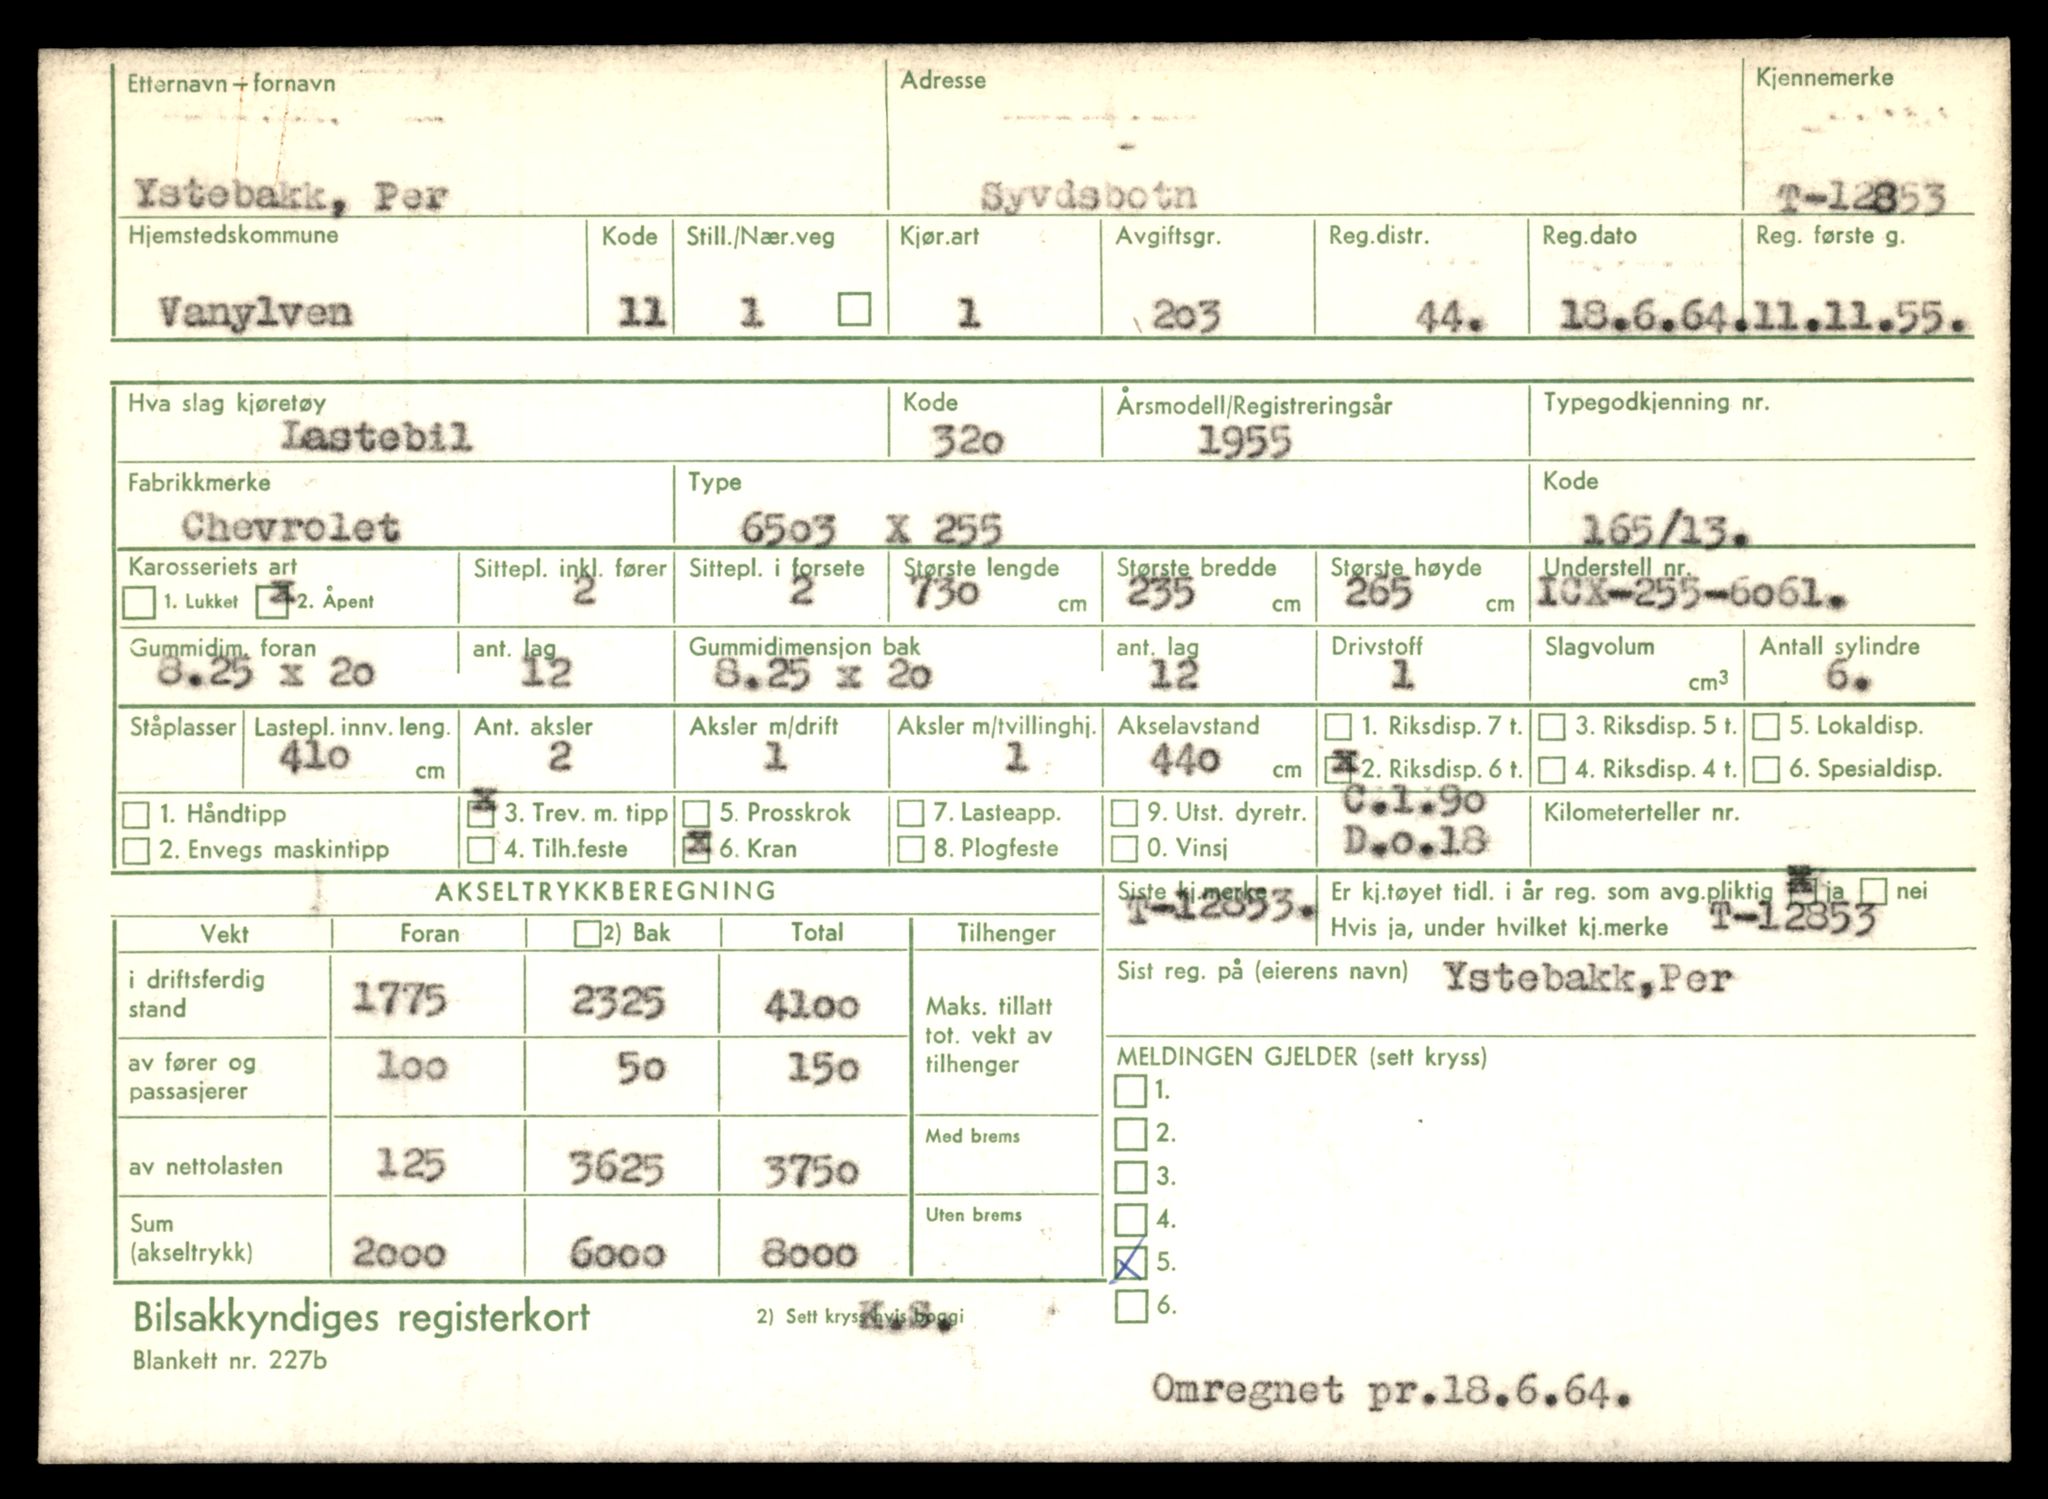 Etternavn + fornavn Adresse Kjennemerke
Ystebakk, Per Syvdsbotn T-12853
Hjemstedskommune Kode Still./Nær.veg Kjør.art Avgiftsgr. Reg.distr. Reg.dato Reg. første g.
Vanylven 11 1 1 203 44. 18.6.64. 11.11.55.
Hva slag kjøretøy Kode Årsmodell/Registreringsår Typegodkjenning nr.
Lastebil 320 1955
Fabrikkmerke Type Kode
Chevrolet 6503 X 255 165/13.
Karosseriets art Sittepl. inkl. fører Sittepl. i forsete Største lengde Største bredde Største høyde Understell nr.
1. Lukket x 2. Åpent 2 2 730 cm 235 cm 265 cm ICX-255-6061.
Gummidim. foran ant. lag Gummidimensjon bak ant. lag Drivstoff Slagvolum Antall sylindre
8.25 x 20 12 8.25 x 20 12 1 cm3 6.
Ståplasser Lastepl. innv. leng. Ant. aksler Aksler m/drift Aksler m/tvillinghj. Akselavstand 1. Riksdisp. 7 t. 3. Riksdisp. 5 t. 5. Lokaldisp.
410 cm 2 1 1 440 cm x 2. Riksdisp. 6 t. 4. Riksdisp. 4 t. 6. Spesialdisp.
1. Håndtipp x 3. Trev. m. tipp 5. Prosskrok 7. Lasteapp. 9. Utst. dyretr. C.1.90 Kilometerteller nr.
2. Envegs maskintipp 4. Tilh.feste x 6. Kran 8. Plogfeste 0. Vinsj D.0.18
AKSELTRYKKBEREGNING Siste kj.merke Er kj.tøyet tidl. i år reg. som avg.pliktig x ja nei
T-12853. Hvis ja, under hvilket kj.merke T-12853
Vekt Foran 2) Bak Total Tilhenger
i driftsferdig stand 1775 2325 4100 Maks. tillatt tot. vekt av tilhenger
Sist reg. på (eierens navn) Ystebakk,Per
av fører og passasjerer 100 50 150
MELDINGEN GJELDER (sett kryss)
1.
2.
av nettolasten 125 3625 3750 Med brems
3.
4.
Sum (akseltrykk) 2000 6000 8000 Uten brems
x 5.
6.
Bilsakkyndiges registerkort 2) Sett kryss hvis boggi K.S.
Blankett nr. 227b
Omregnet pr.18.6.64.